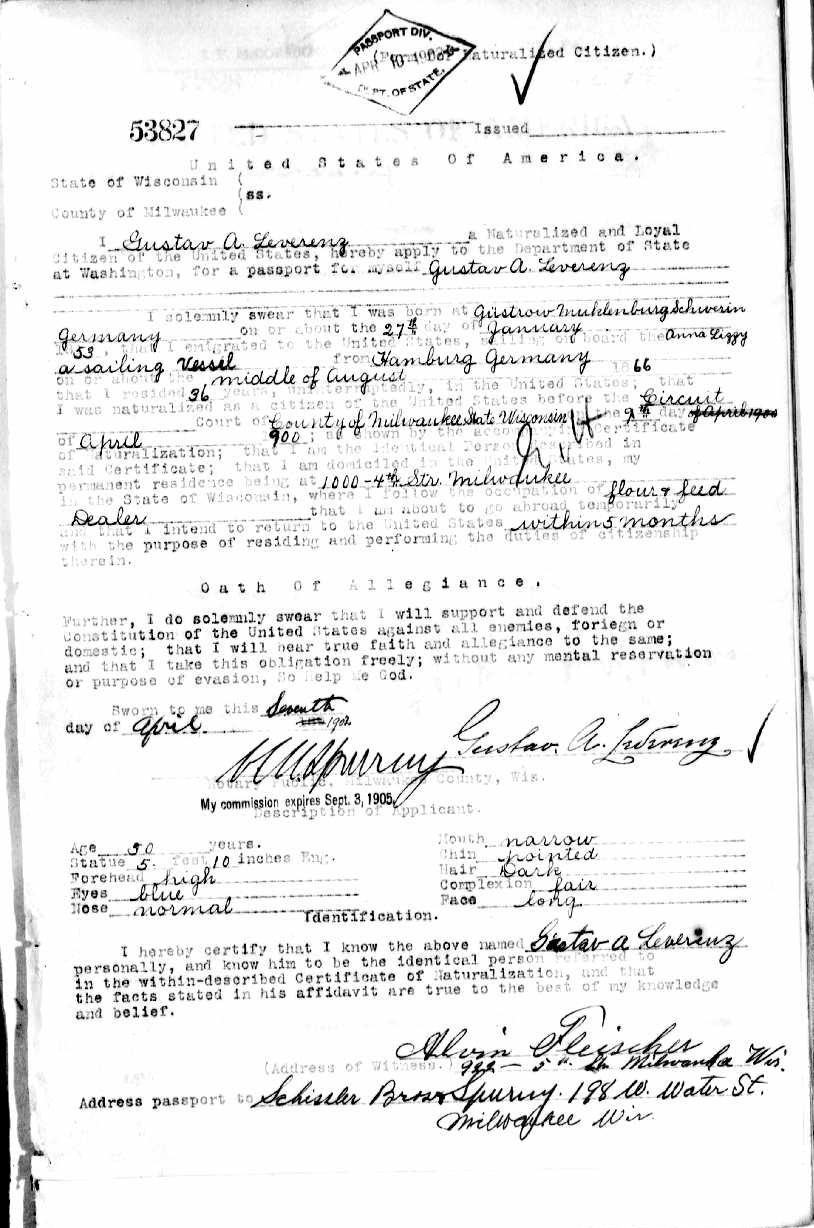 PASSPORT DIV.
APR 10 1902
DEPT. OF STATE.
(Form for Naturalized Citizen.)
53827 Issued
United States Of America.
State of Wisconsin (
(ss.
County of Milwaukee (
I Gustav A. Leverenz a Naturalized and Loyal
Citizen of the United States, hereby apply to the Department of State
at Washington, for a passport for myself Gustav A. Leverenz
I solemnly swear that I was born at Güstrow Muklenburg Schwerin
Germany on or about the 27th day of January
53, that I emigrated to the United States, sailing on board the Anna Lizzy
a sailing Vessel from Hamburg Germany
on or about the middle of August 1866
that I resided 36 years, uninterruptedly, in the United States; that
I was naturalized as a citizen of the United States before the Circuit
Court of County of Milwaukee State Wisconsin the 9th day of April 1900
of April 900; as shown by the accompanying Certificate
of Naturalization; that I am the Identical Person described in
said Certificate; that I am domiciled in the United States, my
permanent residence being at 1000-4th Str. Milwaukee
in the State of Wisconsin, where I follow the occupation of flour & feed
Dealer that I am about to go abroad temporarily
and that I intend to return to the United States within 5 months
with the purpose of residing and performing the duties of citizenship
therein.
Oath Of Allegiance.
Further, I do solemnly swear that I will support and defend the
Constitution of the United States against all enemies, foriegn or
domestic; that I will bear true faith and allegiance to the same;
and that I take this obligation freely; without any mental reservation
or purpose of evasion, So Help Me God.
Sworn to me this Seventh
day of April 1902
Gustav. A. Leverenz
Spurny
Notary Public, Milwaukee County, Wis.
My commission expires Sept. 3, 1905.
Description of Applicant.
Age 50 years. Mouth narrow
Statue 5. feet 10 inches Eng. Chin pointed
Forehead high Hair Dark
Eyes blue Complexion fair
Nose normal Face long
Identification.
I hereby certify that I know the above named Gustav A Leverenz
personally, and know him to be the identical person referred to
in the within-described Certificate of Naturalization, and that
the facts stated in his affidavit are true to the best of my knowledge
and belief.
Alvin Fleischer
(Address of Witness.) 922 - 5th Str Milwaukee Wis.
Address passport to Schissler Bros & Spurny. 198 W. Water St.
Milwaukee Wis